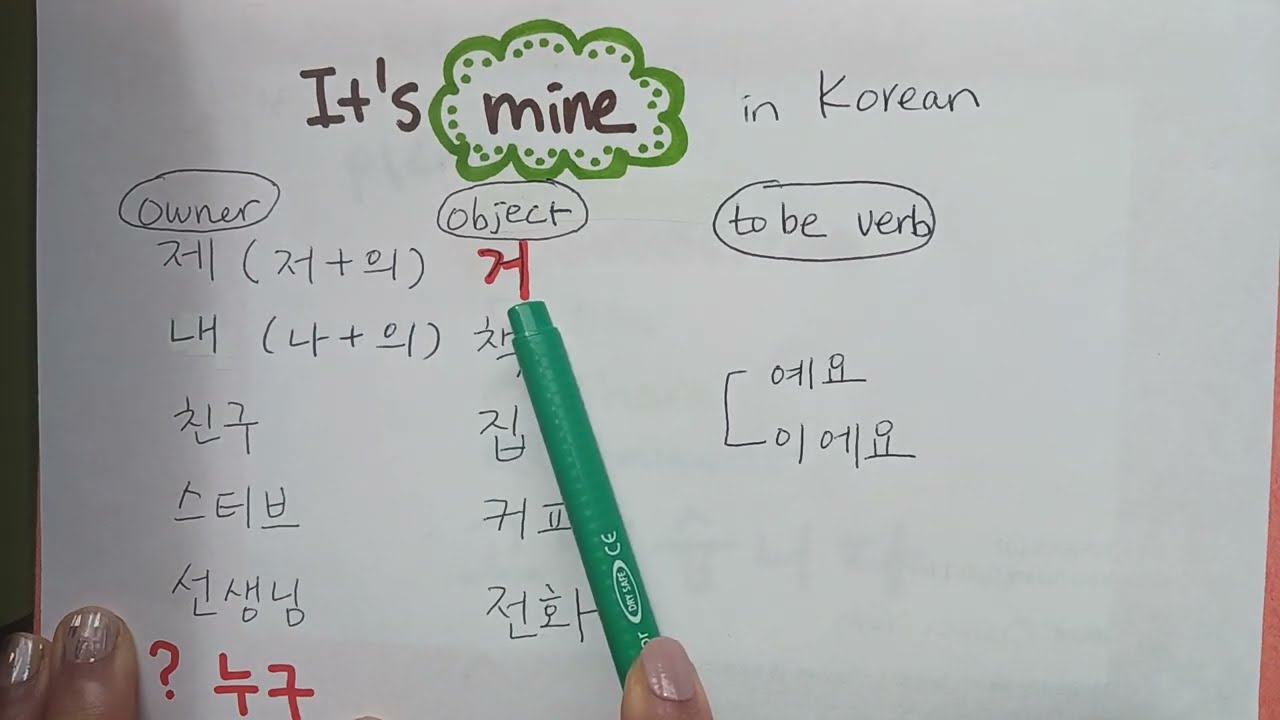 It's mine in Korean
owner object to be verb
제 (저+의) 거
내 (나+의) 책
예요
친구 집
이에요
스티브 커피
선생님 전화
? 누구
DRY SAFE CE